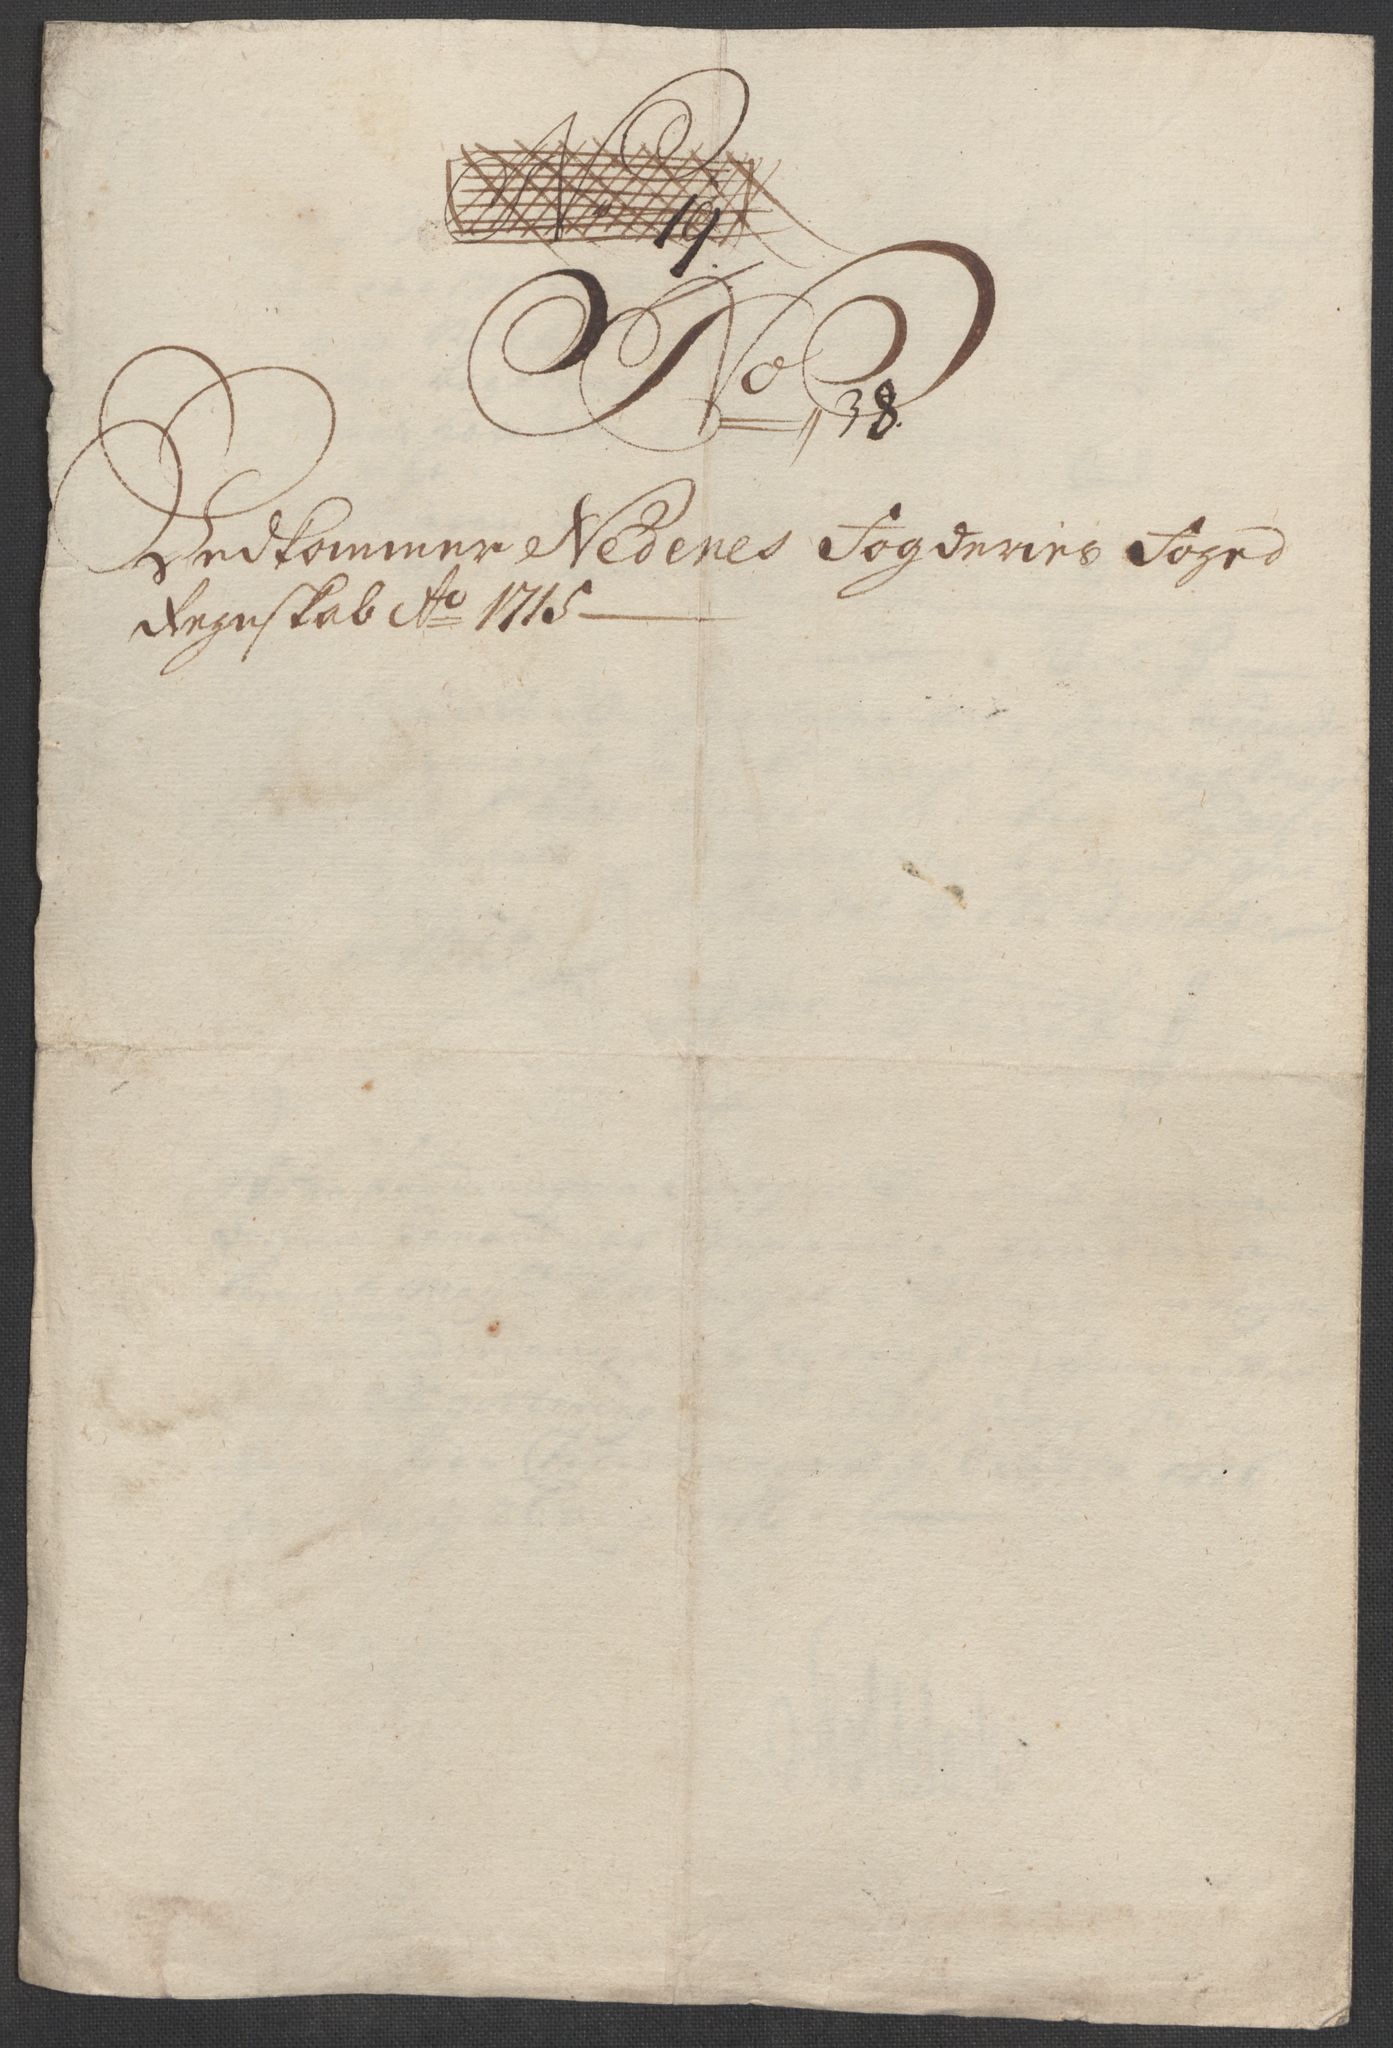 No 19.
No 38.
Vedkommer Nedenes Fogderies Foged
Regnskab Ao 1715